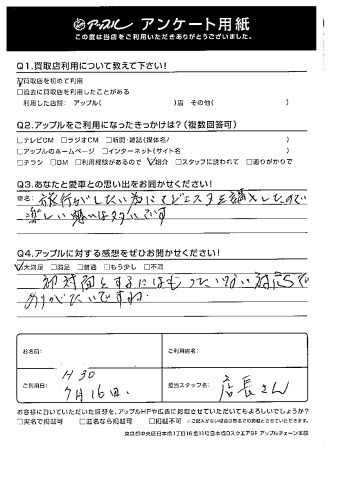 アップル アンケート用紙
この度は当店をご利用いただきありがとうございました。
Q1.買取店利用について教えて下さい!
☑買取店を初めて利用
□過去に買取店を利用したことがある
利用した店舗: アップル( )店 その他( )
Q2.アップルをご利用になったきっかけは?(複数回答可)
□テレビCM □ラジオCM □新聞・雑誌(媒体名/ )
□アップルのホームページ □インターネット(サイト名 )
□チラシ □DM □利用経験があるので ☑紹介 □スタッフに誘われて □通りがかりで
Q3.あなたと愛車との思い出をお聞かせください!
車名: 旅行がしたい為にエスティマを購入したので
楽しい想い出です
Q4.アップルに対する感想をぜひお聞かせください!
☑大満足 □満足 □普通 □もう少し □不満
初対面とするにはもったいない対応で
ありがたいですね
お名前:
ご利用店名:
ご利用日: H30
7月16日.
担当スタッフ名: 店長さん
お客様に頂いていただいた感想を、アップルHPや広告に掲載させていただいてもよろしいでしょうか?
□実名で掲載可 □匿名なら掲載可 □掲載不可 ※ご記入がない場合は匿名での掲載可とさせて頂きます。
東京都中央区日本橋1丁目16番11号日本橋Dスクエア8F アップルチェーン本部